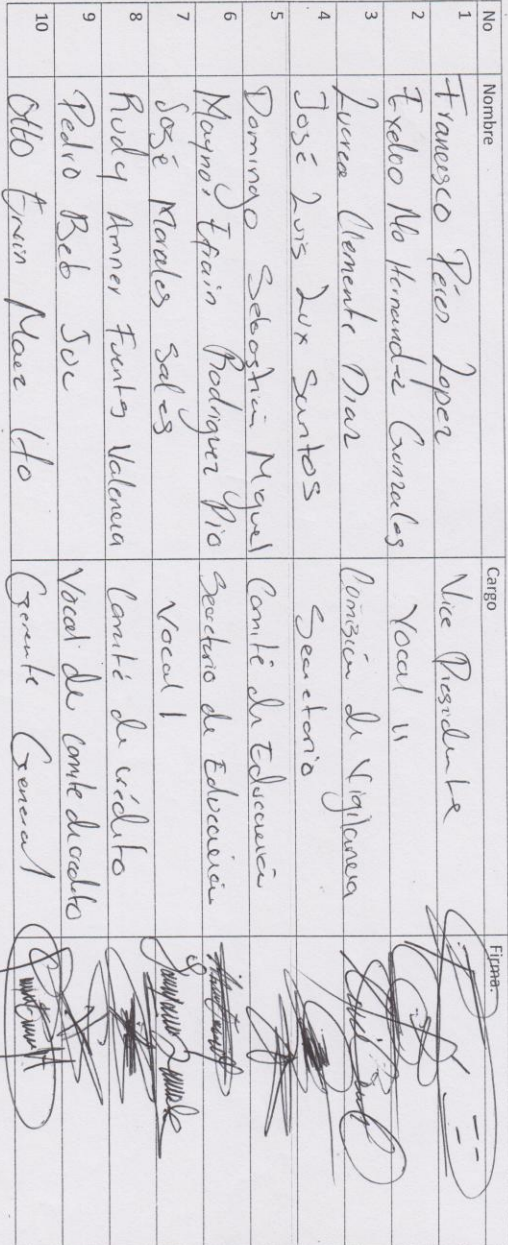 No Nombre Cargo Firma.
1 Francisco Pérez Lopez Vice Presidente
2 Hernandez Gonzales Vocal II
3 Clemente Diaz Comisión de Vigilancia
4 José Luis Lux Santos Secretario
5 Domingo Sebastián Miguel Comité de Educación
6 Maynor Efrain Rodriguez Pio Secretario de Educación
7 José Morales Sales Vocal I
8 Rudy Amner Fuentes Valencia Comité de crédito
9 Pedro Beb Juc Vocal de comite de credito
10 Otto Erwin Maez Gerente General